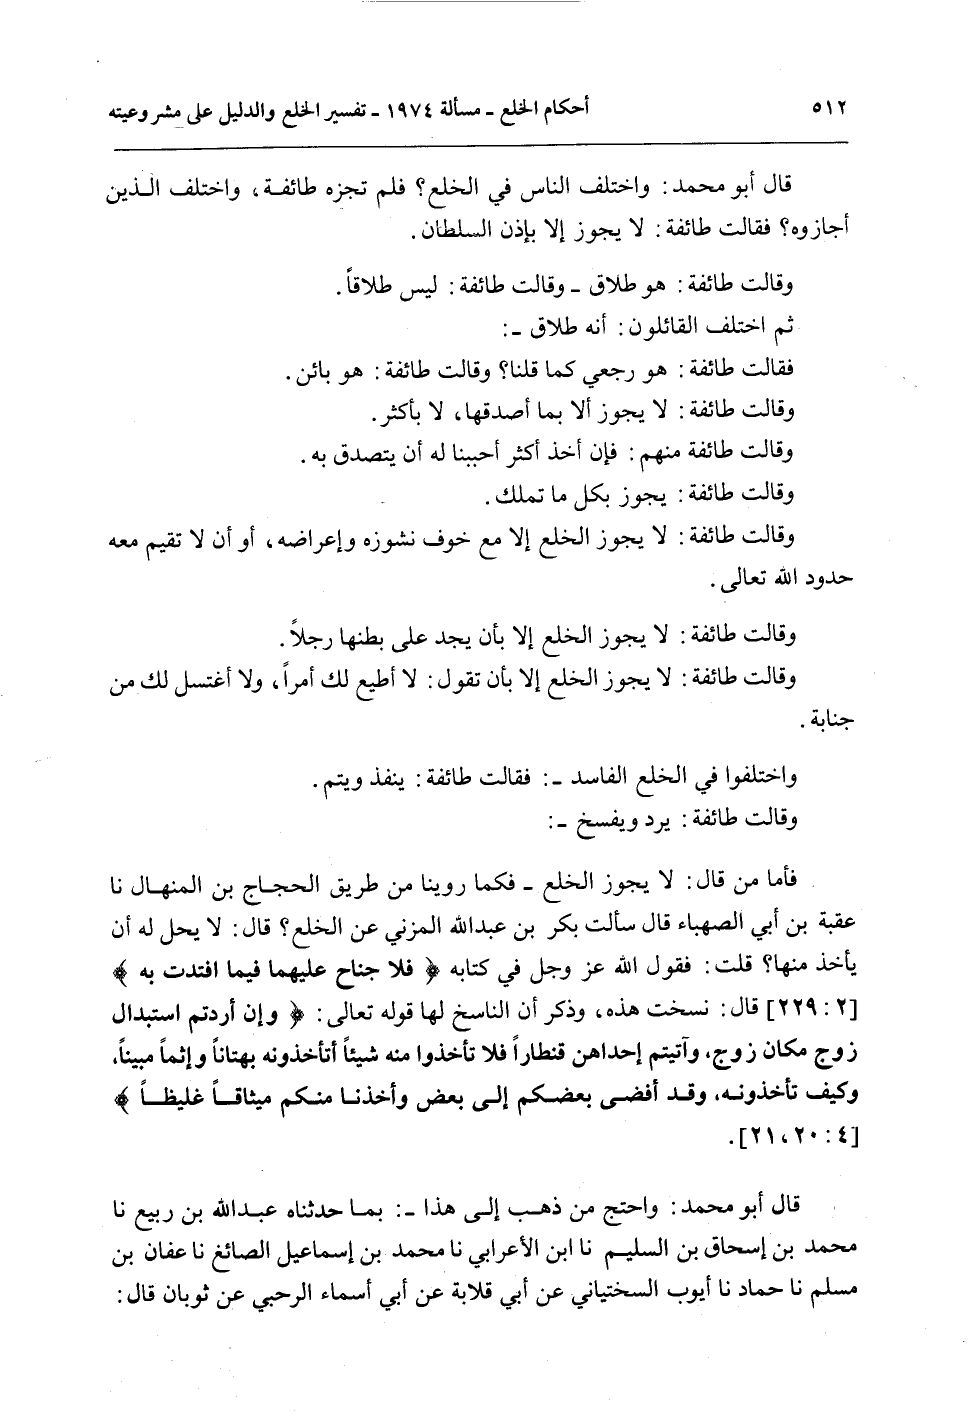 ٥١٢ أحكام الخلع ـ مسألة ١٩٧٤ ـ تفسير الخلع والدليل على مشروعيته
قال أبو محمد: واختلف الناس في الخلع؟ فلم تجزه طائفـة، واختلف الـذين
أجازوه؟ فقالت طائفة: لا يجوز إلا بإذن السلطان.
وقالت طائفة: هو طلاق ـ وقالت طائفة: ليس طلاقاً.
ثم اختلف القائلون: أنه طلاق ـ:
فقالت طائفة: هو رجعي كما قلنا؟ وقالت طائفة: هو بائن.
وقالت طائفة: لا يجوز ألا بما أصدقها، لا بأكثر.
وقالت طائفة منهم: فإن أخذ أكثر أحببنا له أن يتصدق به.
وقالت طائفة: يجوز بكل ما تملك.
وقالت طائفة: لا يجوز الخلع إلا مع خوف نشوزه وإعراضه، أو أن لا تقيم معه
حدود الله تعالى.
وقالت طائفة: لا يجوز الخلع إلا بأن يجد على بطنها رجلاً.
وقالت طائفة: لا يجوز الخلع إلا بأن تقول: لا أطيع لك أمراً، ولا أغتسل لك من
جنابة.
واختلفوا في الخلع الفاسد ـ: فقالت طائفة: ينفذ ويتم.
وقالت طائفة: يرد ويفسخ ـ:
فأما من قال: لا يجوز الخلع ـ فكما روينا من طريق الحجـاج بن المنهـال نا
عقبة بن أبي الصهباء قال سألت بكر بن عبدالله المزني عن الخلع؟ قال: لا يحل له أن
يأخذ منها؟ قلت: فقول الله عز وجل في كتابه ﴿ فلا جناح عليهما فيما افتدت به ﴾
[٢: ٢٢٩] قال: نسخت هذه، وذكر أن الناسخ لها قوله تعالى: ﴿ وإن أردتم استبدال
زوج مكان زوج، وآتيتم إحداهن قنطاراً فلا تأخذوا منه شيئاً أتأخذونه بهتاناً وإثماً مبيناً،
وكيف تأخذونـه، وقـد أفضـى بعضـكم إلـى بعض وأخذنـا منـكم ميثاقـاً غليظـاً ﴾
[٤: ٢٠، ٢١].
قال أبو محمد: واحتج من ذهـب إلـى هذا ـ: بمـا حدثناه عبـدالله بن ربيع نا
محمد بن إسحاق بن السليـم نا ابن الأعرابي نا محمد بن إسماعيل الصائغ نا عفان بن
مسلم نا حماد نا أيوب السختياني عن أبي قلابة عن أبي أسماء الرحبي عن ثوبان قال: